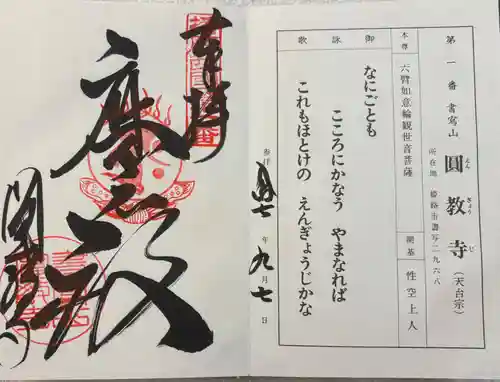 第一番 書寫山 圓教寺 (天台宗)
えん ぎょう じ
所在地 姫路市書写二九六八
本尊 六臂如意輪観世音菩薩
開基 性空上人
御詠歌
なにごとも
こころにかなう やまなれば
これもほとけの えんぎょうじかな
参拝 年 九月七日
奉拝
摩尼殿
圓教寺